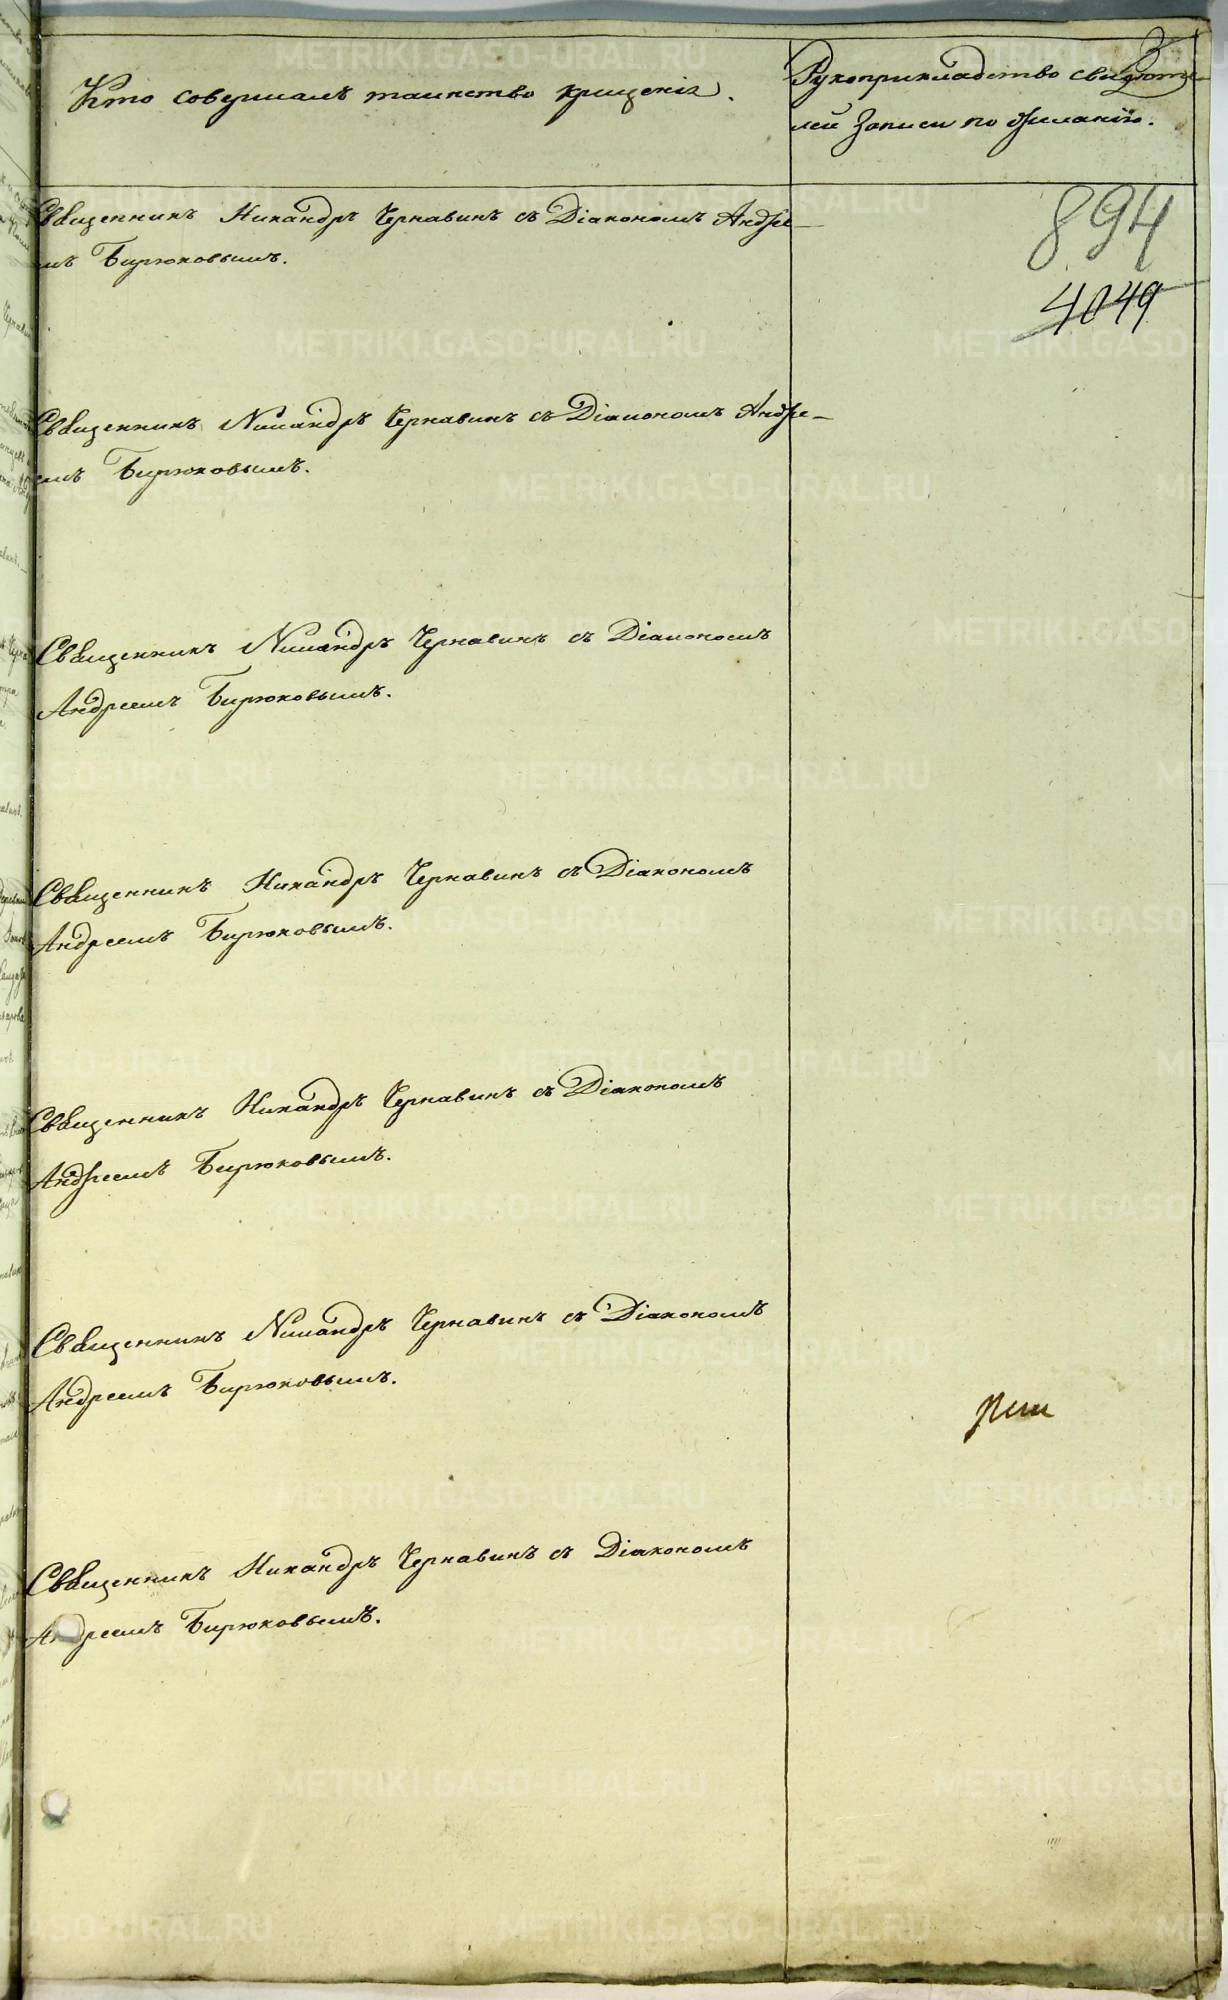 Кто совершалъ таинство крещенія.
Рукоприкладство свидѣте-
лей записи по желанію.
3
894
4049
Священникъ Никандръ Чернавинъ съ Діакономъ Андре-
емъ Бирюковымъ.
Священникъ Никандръ Чернавинъ съ Діакономъ Андре-
емъ Бирюковымъ.
Священникъ Никандръ Чернавинъ съ Діакономъ
Андреемъ Бирюковымъ.
Священникъ Никандръ Чернавинъ съ Діакономъ
Андреемъ Бирюковымъ.
Священникъ Никандръ Чернавинъ съ Діакономъ
Андреемъ Бирюковымъ.
Священникъ Никандръ Чернавинъ съ Діакономъ
Андреемъ Бирюковымъ.
Священникъ Никандръ Чернавинъ съ Діакономъ
Андреемъ Бирюковымъ.
METRIKI.GASO-URAL.RU